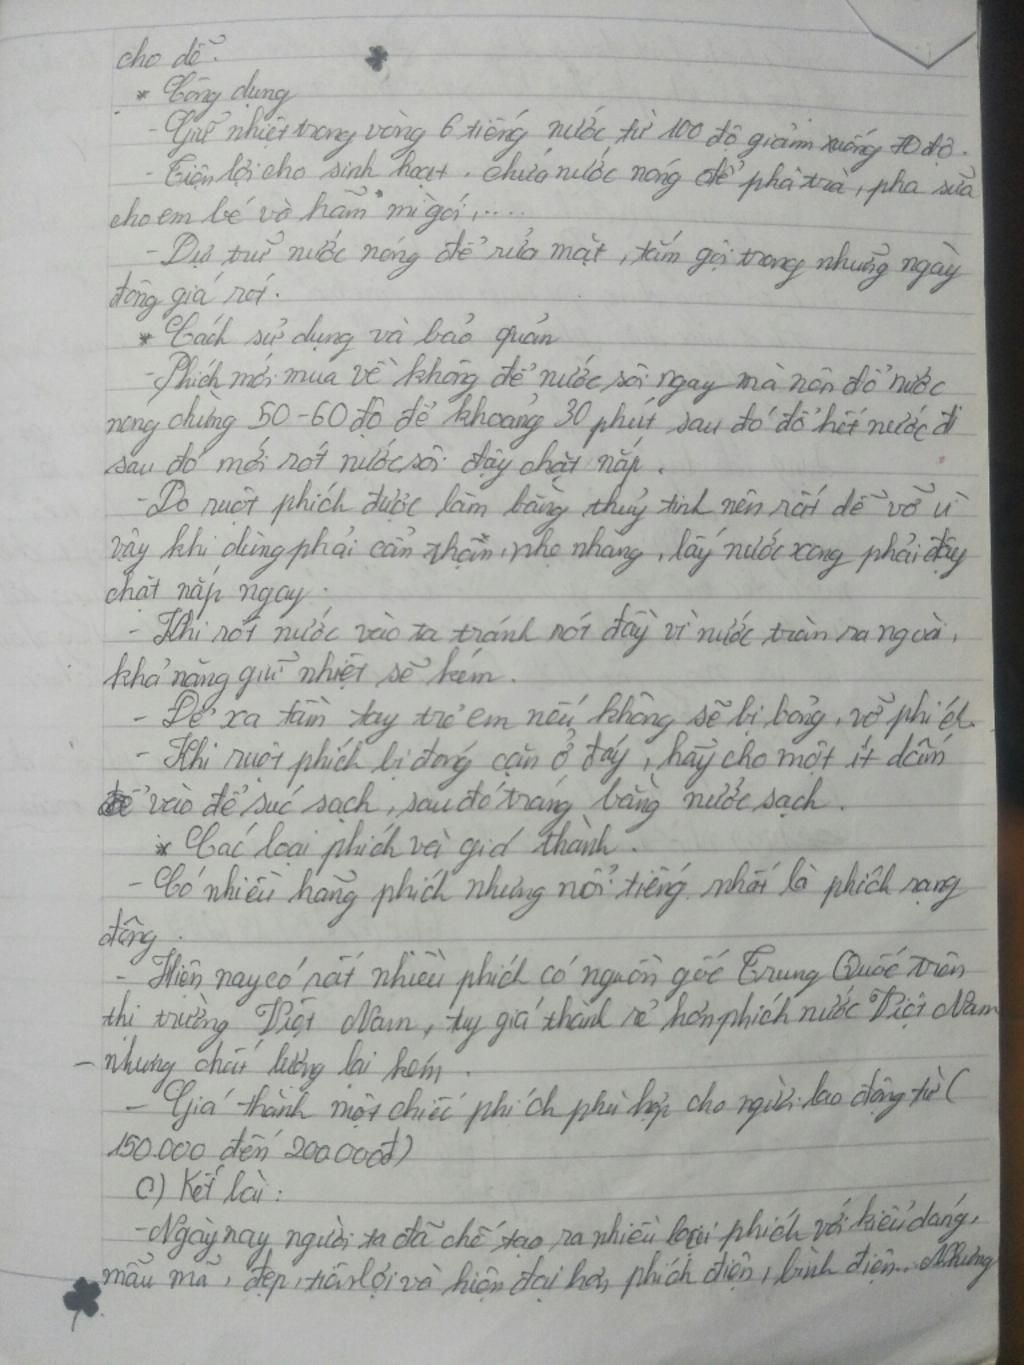 cho dễ.
* Công dụng
- Giữ nhiệt trong vòng 6 tiếng nước từ 100 độ giảm xuống 70 độ.
- Tiện lợi cho sinh hoạt. chứa nước nóng để pha trà, pha sữa
cho em bé và hầm mì gói,....
- Dự trữ nước nóng để rửa mặt, tắm gội trong những ngày
đông giá rét.
* Cách sử dụng và bảo quản
- Phích mới mua về không để nước sôi ngay mà nên đổ nước
nong chừng 50-60 độ để khoảng 30 phút sau đó đổ hết nước đi
sau đó mới rót nước sôi đậy chặt nắp.
- Do ruột phích được làm bằng thuỷ tinh nên rất dễ vỡ vì
vậy khi dùng phải cẩn thận, nhẹ nhàng, lấy nước xong phải đậy
chặt nắp ngay.
- Khi rót nước vào ta tránh rót đầy vì nước tràn ra ngoài,
khả năng giữ nhiệt sẽ kém.
- Để xa tầm tay trẻ em nếu không sẽ bị bỏng, vỡ phích.
- Khi ruột phích bị đóng cặn ở đáy, hãy cho một ít dấm
vào để súc sạch, sau đó tráng bằng nước sạch.
* Các loại phích và giá thành.
- Có nhiều hãng phích nhưng nổi tiếng nhất là phích rạng
đông.
- Hiện nay có rất nhiều phích có nguồn gốc Trung Quốc trên
thị trường Việt Nam, tuy giá thành rẻ hơn phích nước Việt Nam
- nhưng chất lượng lại kém.
- Giá thành một chiếc phích phù hợp cho người lao động từ (
150.000 đến 200.000đ)
c) Kết bài:
- Ngày nay người ta đã chế tạo ra nhiều loại phích với kiểu dáng,
mẫu mã, đẹp, tiện lợi và hiện đại hơn phích điện, bình điện.. Nhưng